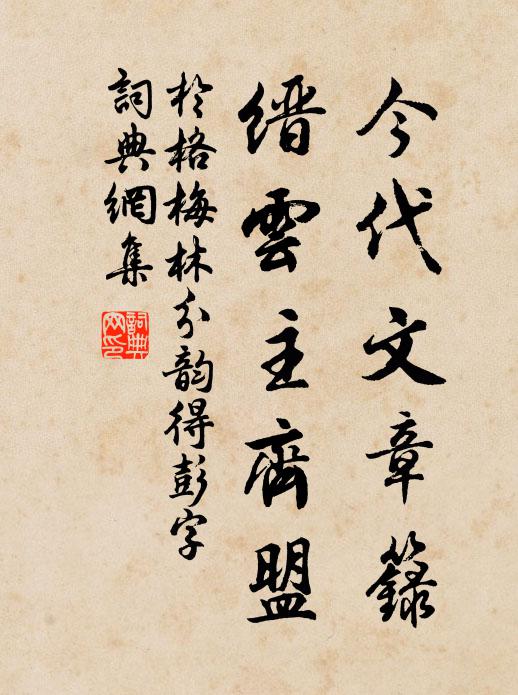 今代文章籙
縉雲主齊盟
於格梅林分韵得彭字
詞典網集
詞典網印